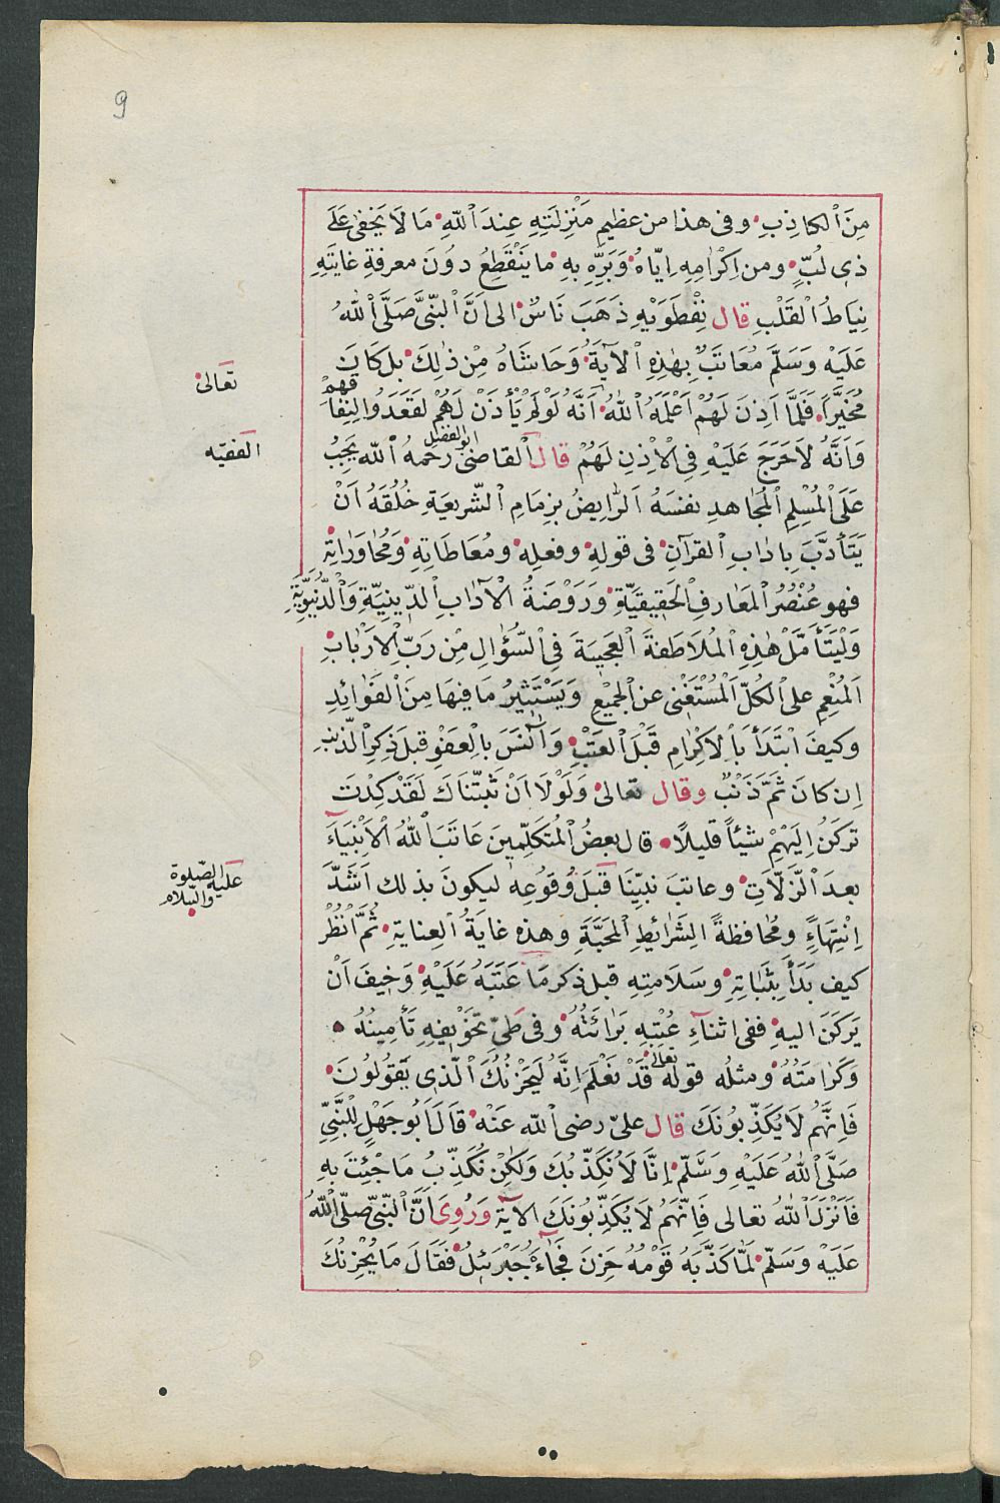 9
مِنَ ٱلْكَاذِبِ وفى هذا من عظيمِ مَنْزِلَتِهِ عِندَ ٱللّٰهِ مَا لَا يَخْفٰى عَلَى
ذى لُبٍّ ومن اِكْرَامِهِ ايّاهُ وَبَرِّهِ بِهِ ما يَنْقَطِعُ دوُنَ معرفةِ غايَتِهِ
نِيَاطُ ٱلْقَلْبِ قال نِفْطَوَيْهِ ذَهَبَ نَاسٌ الى اَنَّ ٱلنّبِىَّ صَلَّى ٱللّٰهُ
عَلَيْهِ وَسَلَّمَ مُعَاتَبٌ بِهٰذِهِ ٱلْآيَةِ وَحَاشَاهُ مِنْ ذٰلِكَ بل كَانَ
تعالىٰ
مُخَيَّرًا فَلَمَّا اَذِنَ لَهُمْ اَعْلَمَهُ ٱللّٰهُ اَنَّهُ لَوْ لَمْ يَأْذَنْ لَهُمْ لقَعَدُوا لِنِفَاقِهِمْ
وَاَنَّهُ لَا حَرَجَ عَلَيْهِ فِى ٱلْاِذْنِ لَهُمْ قال ٱلقاضىٰ ابو الفضل رحمهُ ٱللّٰه يَجِبُ
الفقيه
عَلَى ٱلْمُسْلِمِ ٱلْمُجَاهدِ نفسَهُ ٱلرَّايِضِ بزِمَامِ ٱلشّريعَةِ خُلُقَهُ اَنْ
يَتَأَدَّبَ بِاٰدَابِ ٱلقرآنِ فى قولِهِ وفعلِهِ ومُعَاطَاتِهِ وَمُحَاوَرَاتِهِ
فهو عُنْصُرُ ٱلْمَعَارِفِ ٱلْحَقِيقِيَّةِ وَرَوْضَةُ ٱلْآدَابِ ٱلدّينِيَّةِ وَٱلدُّنْيَوِيَّةِ
وَلْيَتَأَمَّلْ هٰذِهِ ٱلمُلَاطَفةَ ٱلعَجِيبَةَ فِى ٱلسُّؤَالِ مِنْ رَبِّ ٱلْاَرْبَابِ
ٱلمُنْعِمِ على ٱلكُلِّ ٱلْمُسْتَغْنِى عن ٱلجَمِيعِ وَيَسْتَثِيرُ مَا فِيهَا مِنَ ٱلفَوَائِدِ
وكيفَ ابْتَدَأَ بِٱلْاِكْرَامِ قَبْلَ ٱلعَتْبِ وَآنَسَ بالْعَفْوِ قبلَ ذِكِر ٱلذّنبِ
اِن كانَ ثَمَّ ذَنْبٌ وقال تعالىٰ وَلَوْلَا اَنْ ثَبَّتْنَاكَ لَقَدْ كِدْتَ
تركَنُ اِلَيْهِمْ شيئاً قليلًا قال بعضُ ٱلْمُتَكَلِّمينَ عَاتَبَ ٱللّٰهُ ٱلْاَنْبِيَاءَ
بعدَ ٱلزَّلَّاتِ وعاتبَ نبيّنَا قَبلَ وُقوُعهِ ليكونَ بذلك اَشَدَّ
عليه الصّلوة
والسّلام
اِنْتِهَاءً ومُحافظةً لِشَرَائِطِ ٱلْمَحَبَّةِ وهذه غايَةُ ٱلعِنايةِ ثُمَّ ٱنْظُرْ
كيف بَدَأَ بِثَبَاتِهِ وسَلَامتِهِ قبل ذكر مَا عَتَبَهُ عَلَيْهِ وَخِيفَ اَنْ
يَركَنَ اليهِ ففى اثناءِ عَتْبِهِ بَرَائَتُهُ وفى طَىِّ تَخْوِيفِهِ تَأْمِينُهُ
وَكَرَامَتُهُ ومثلُه قوله تعالىٰ قَدْ نَعْلَمُ اِنَّهُ لَيَحْزُنُكَ ٱلّذِى يَقُولُونَ
فَاِنَّهُمْ لَا يُكَذِّبُونَكَ قال علىّ رضى ٱللّٰه عَنْهُ قَالَ اَبُو جَهْلٍ لِلنَّبِىِّ
صَلَّى ٱللّٰهُ عَلَيْهِ وَسَلَّمَ اِنَّا لَا نُكَذِّبُكَ وَلٰكِنْ نُكَذِّبُ مَا جِئْتَ بِهِ
فَاَنْزَلَ ٱللّٰهُ تعالى فَاِنّهُمْ لَا يُكَذِّبُونَكَ الآيةَ وَرُوِىَ اَنَّ ٱلنّبِىَّ صلّى ٱللّٰهُ
عَلَيْهِ وَسَلَّمَ لَمَّا كَذَّبَهُ قَوْمُهُ حَزِنَ فَجَاءَهُ جَبْرَئِيلُ فَقَالَ مَا يُحْزِنُكَ